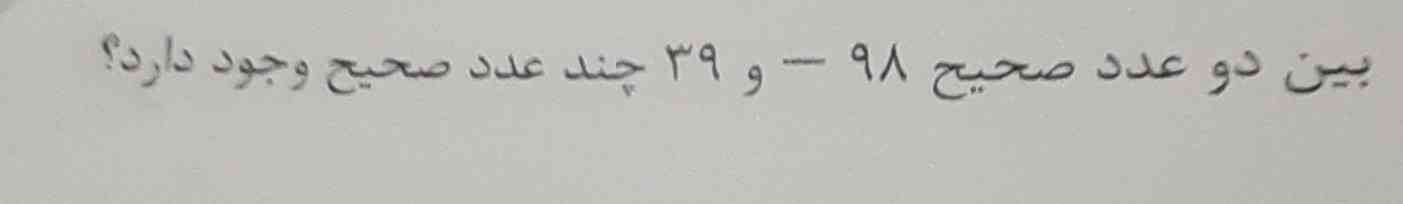 بین دو عدد صحیح ۹۸ – و ۳۹ چند عدد صحیح وجود دارد؟